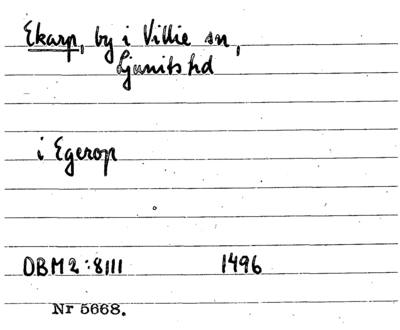 Ekarp, by i Villie sn,
Ljunits hd
i Egerop
DBM2:8111 1496
Nr 5668.